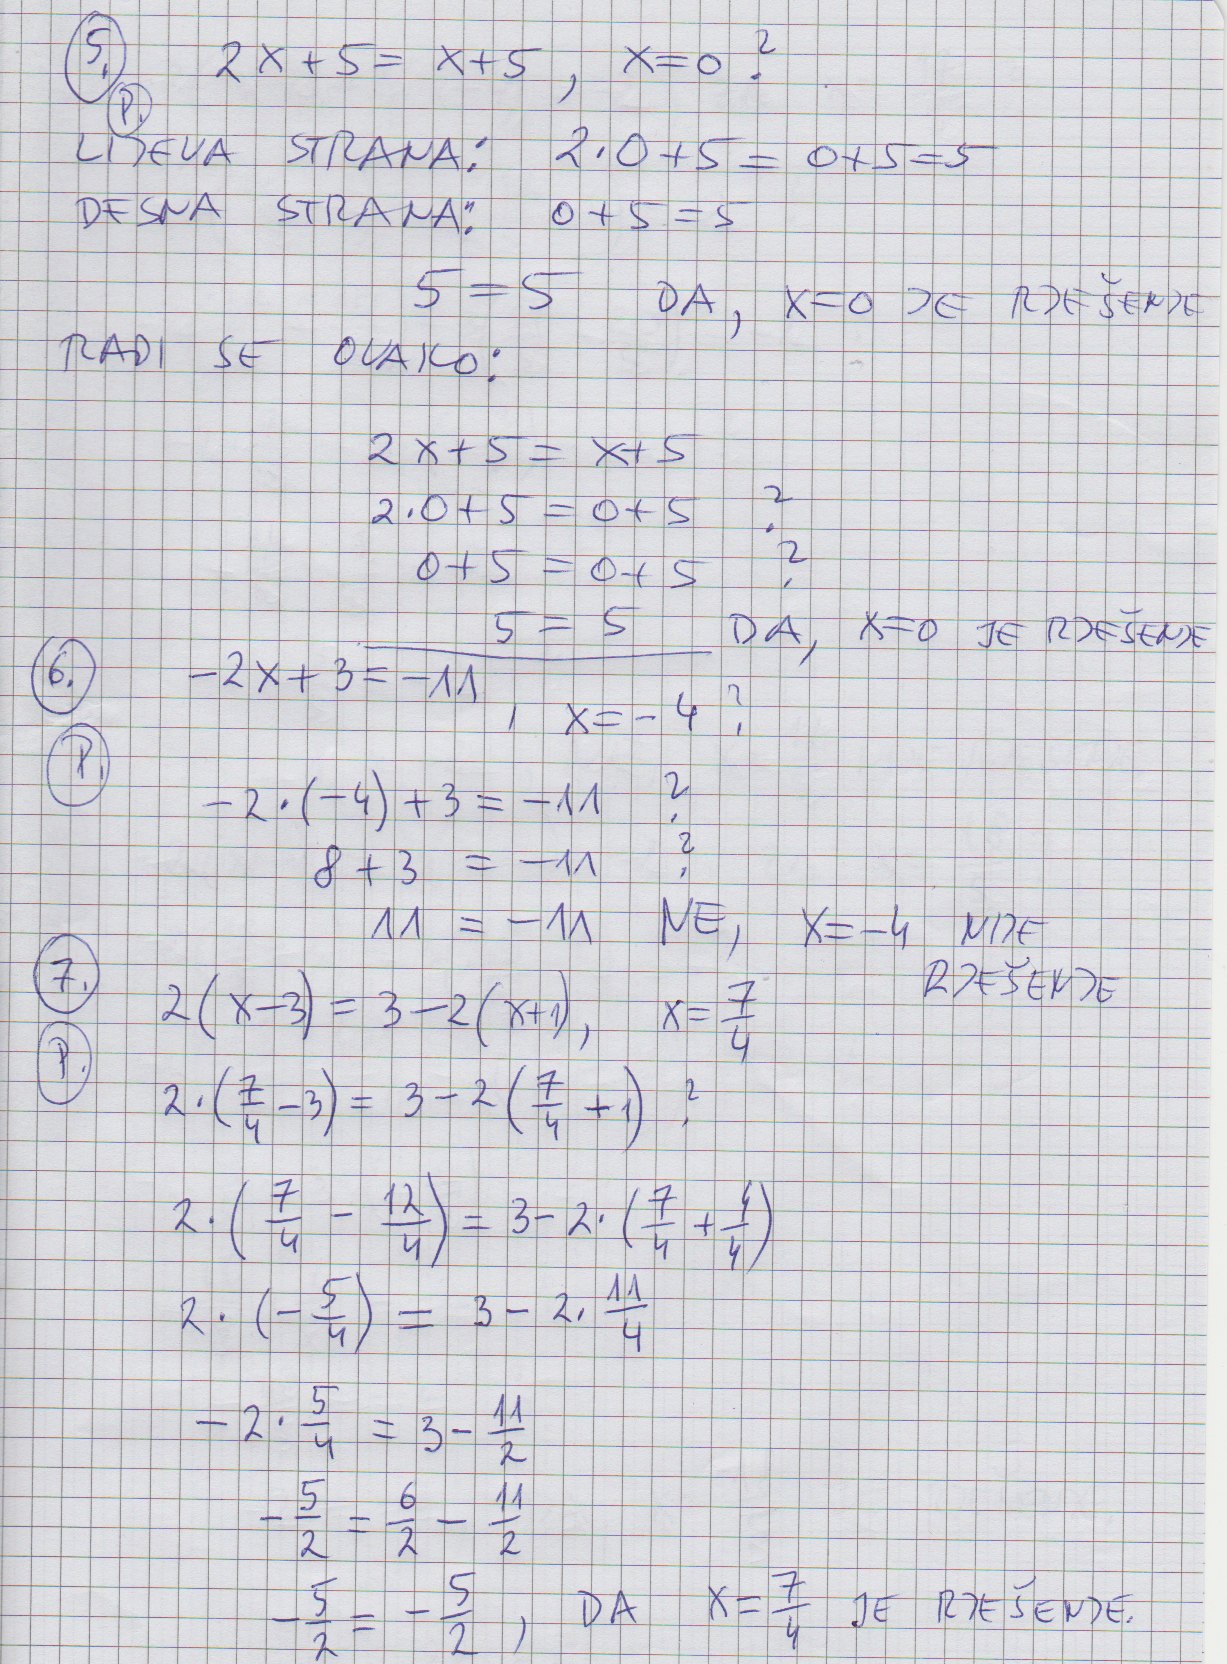 5. 2x+5=x+5, x=0?
P.
LIJEVA STRANA: 2·0+5=0+5=5
DESNA STRANA: 0+5=5
5=5 DA, x=0 JE RJEŠENJE
RADI SE OVAKO:
2x+5=x+5
2·0+5=0+5 ?
0+5=0+5 ?
5=5 DA, x=0 JE RJEŠENJE
6. -2x+3=-11, x=-4?
P.
-2·(-4)+3=-11 ?
8+3=-11 ?
11=-11 NE, x=-4 NIJE
RJEŠENJE
7. 2(x-3)=3-2(x+1), x=7/4
P.
2·(7/4-3)=3-2(7/4+1) ?
2·(7/4-12/4)=3-2·(7/4+4/4)
2·(-5/4)=3-2·11/4
-2·5/4=3-11/2
-5/2=6/2-11/2
-5/2=-5/2, DA x=7/4 JE RJEŠENJE.